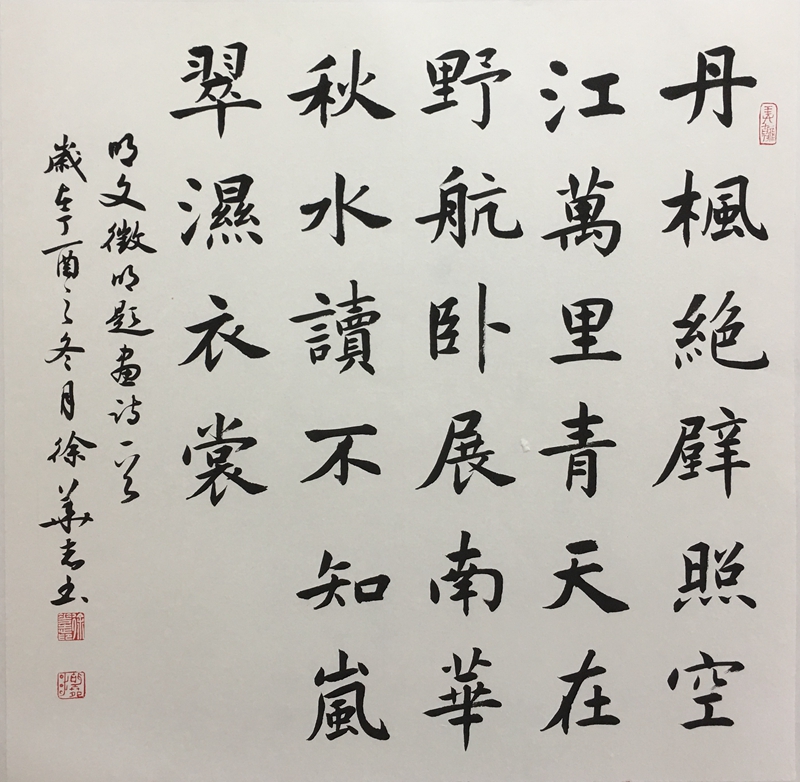 丹楓絕壁照空
江萬里青天在
野航卧展南華
秋水讀不知嵐
翠濕衣裳
明文徵明題畫詩一首
歲在丁酉之冬月徐華志书